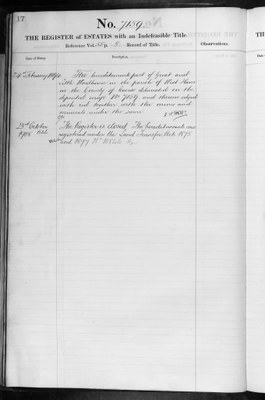 17
No. 7159
THE REGISTER of ESTATES with an Indefeasible Title
Reference Vol. p. Record of Title.
Observations.
Date of Entry
Description
February
The hereditaments part of Great and
Little in the parish of West Ham
in the County of Essex delineated on the
deposited map No 7159 and thereon edged
with red together with the mines and
minerals under the same
23rd October
1908
The Register is closed. The hereditaments are
registered under the Land Transfer Acts 1875
and 1897